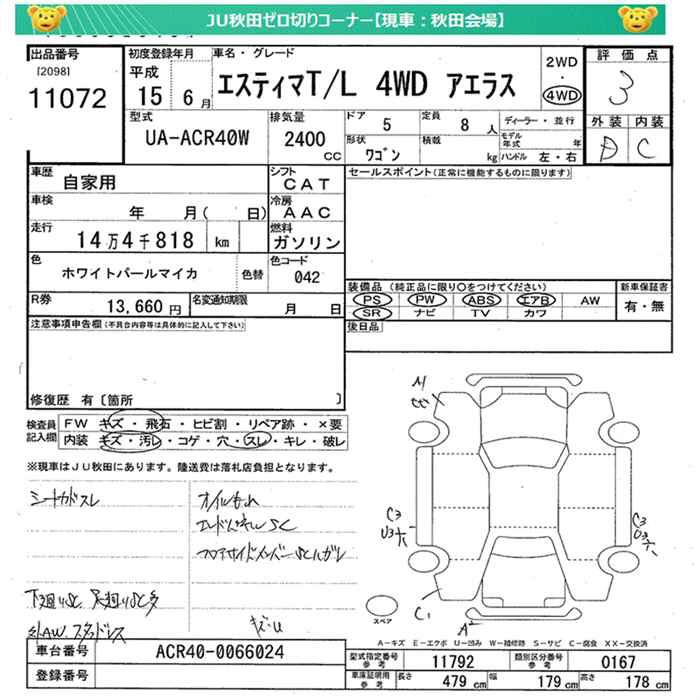 JU秋田ゼロ切りコーナー【現車：秋田会場】
出品番号
[2098]
11072
初度登録年月
平成
15年6月
車名・グレード
エスティマT/L 4WD アエラス
2WD
・
4WD
評価点
3
外装 内装
D C
型式
UA-ACR40W
排気量
2400
CC
ドア
5
定員
8人
形状
ワゴン
積載
kg
ディーラー・並行
モデル年式 年
ハンドル 左・右
車歴
自家用
シフト
CAT
車検
年 月( 日)
冷房
AAC
走行
14万4千818 km
燃料
ガソリン
色
ホワイトパールマイカ
色替
色コード
042
R券
13,660円
名変通知期限
月 日
セールスポイント(正常に機能するものに限ります)
装備品 (純正品に限り○をつけてください)
PS PW ABS エアB AW
SR ナビ TV カワ
新車保証書
有・無
後日品
注意事項申告欄(不具合内容等は具体的に記入して下さい)
修復歴 有〔箇所 〕
検査員
記入欄
FW キズ・飛石・ヒビ割・リペア跡・×要
内装 キズ・汚レ・コゲ・穴・スレ・キレ・破レ
※現車はJU秋田にあります。陸送費は落札店負担となります。
シートカドスレ
オイルもれ
エンドパネルSC
フロアサイドメンバーSCハガレ
下廻りSC 足廻りSC多
社AW スタッドレス
キズU
C3
U3
C3
U3
C1
A2
スペア
A-キズ E-エクボ U-凹み W-補修跡 S-サビ C-腐食 XX-交換済
車台番号
ACR40-0066024
登録番号
型式指定番号
参考
11792
類別区分番号
参考
0167
車庫証明用
参考
長さ
479 cm
幅
179 cm
高さ
178 cm